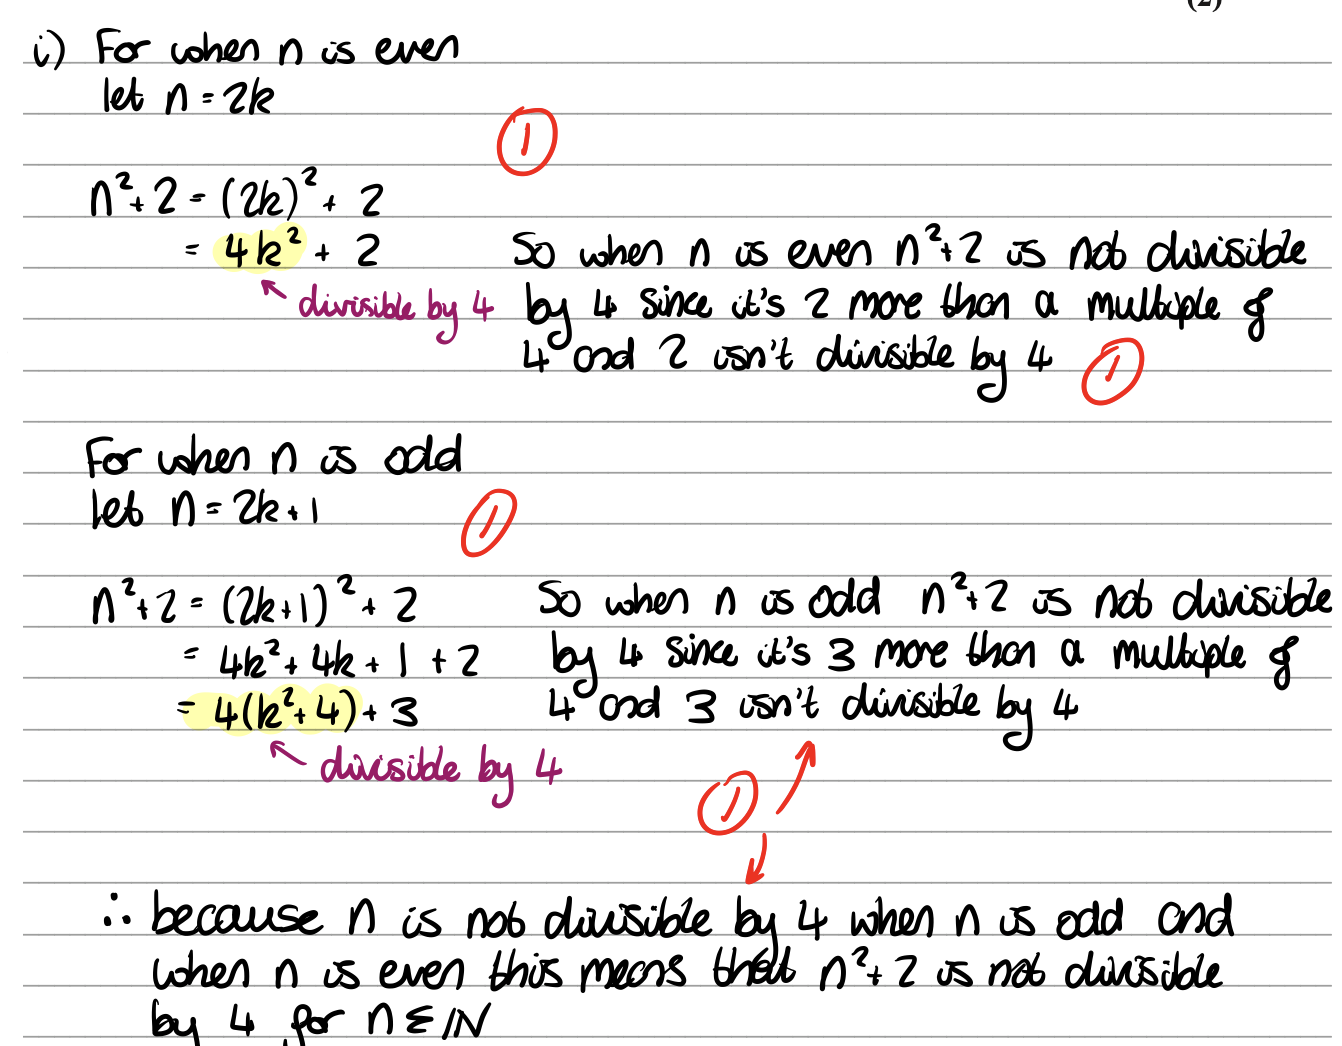 (2)
i) For when n is even
let n = 2k
1
n² + 2 = (2k)² + 2
= 4k² + 2
divisible by 4
So when n is even n² + 2 is not divisible
by 4 since it's 2 more than a multiple of
4 and 2 isn't divisible by 4
1
For when n is odd
let n = 2k + 1
1
n² + 2 = (2k+1)² + 2
= 4k² + 4k + 1 + 2
= 4(k² + 4) + 3
divisible by 4
So when n is odd n² + 2 is not divisible
by 4 since it's 3 more than a multiple of
4 and 3 isn't divisible by 4
1
∴ because n is not divisible by 4 when n is odd and
when n is even this means that n² + 2 is not divisible
by 4 for n ∈ ℕ